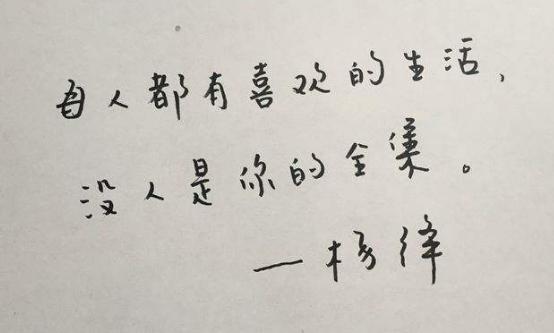 每人都有喜欢的生活，
没人是你的全集。
—杨绛